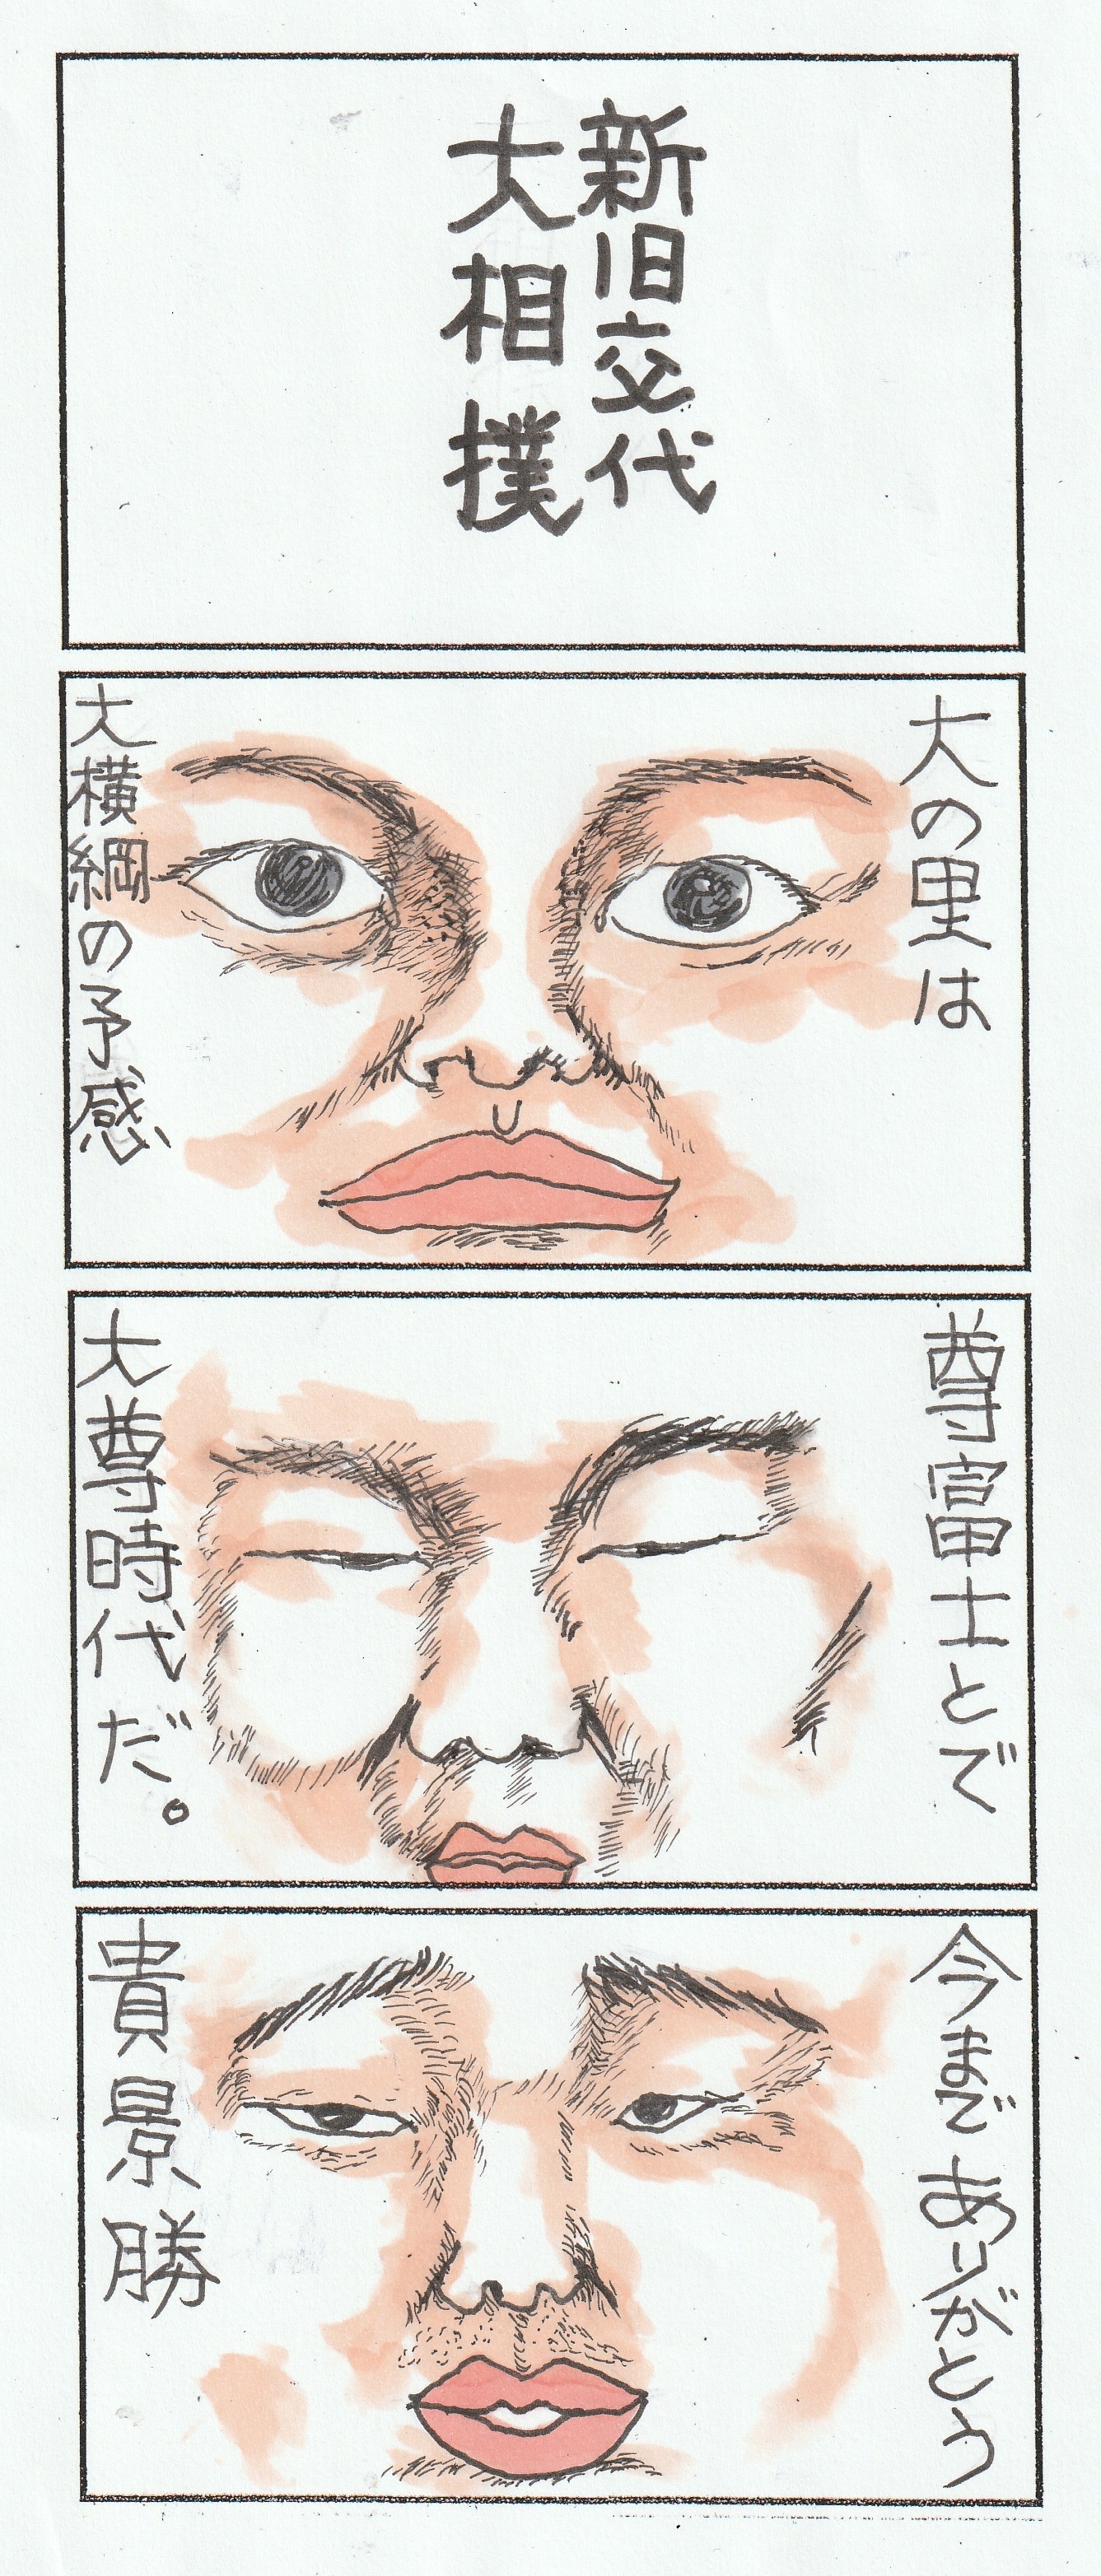 新旧交代
大相撲
大の里は
大横綱の予感
尊富士とで
大尊時代だ。
今まで ありがとう
貴景勝